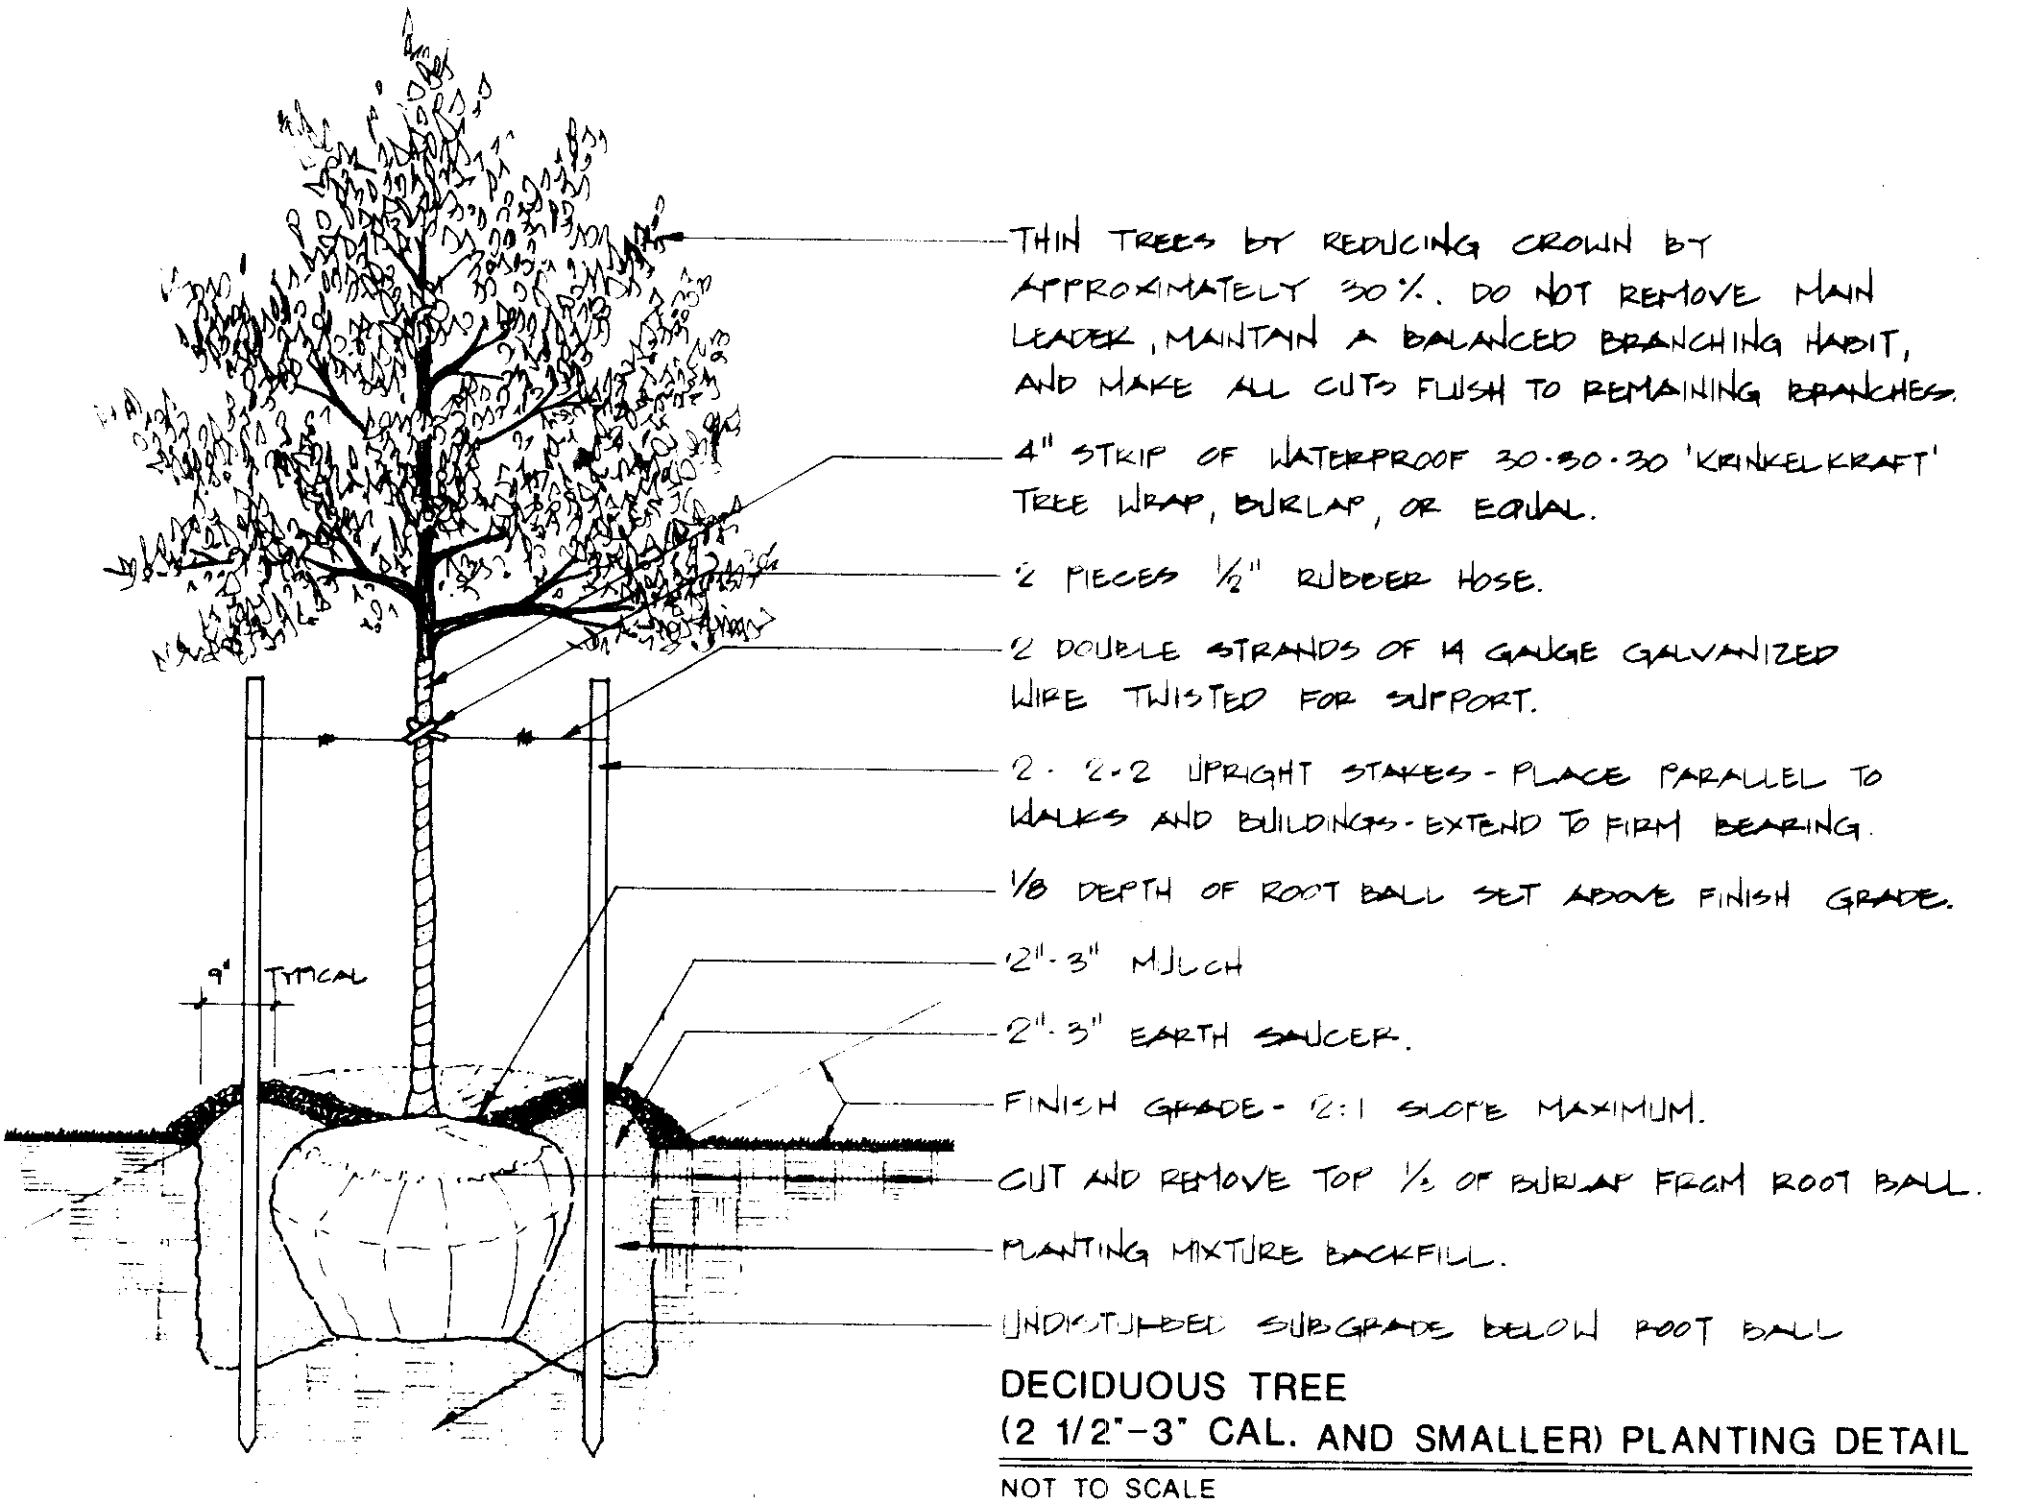 THIN TREES BY REDUCING CROWN BY
APPROXIMATELY 30%. DO NOT REMOVE MAIN
LEADER, MAINTAIN A BALANCED BRANCHING HABIT,
AND MAKE ALL CUTS FLUSH TO REMAINING BRANCHES.
4" STRIP OF WATERPROOF 30·30·30 'KRINKELKRAFT'
TREE WRAP, BURLAP, OR EQUAL.
2 PIECES 1/2" RUBBER HOSE.
2 DOUBLE STRANDS OF 14 GAUGE GALVANIZED
WIRE TWISTED FOR SUPPORT.
2 · 2·2 UPRIGHT STAKES - PLACE PARALLEL TO
WALKS AND BUILDINGS - EXTEND TO FIRM BEARING.
1/8 DEPTH OF ROOT BALL SET ABOVE FINISH GRADE.
9" TYPICAL
2"-3" MULCH
2"-3" EARTH SAUCER.
FINISH GRADE - 2:1 SLOPE MAXIMUM.
CUT AND REMOVE TOP OF BURLAP FROM ROOT BALL.
PLANTING MIXTURE BACKFILL.
UNDISTURBED SUBGRADE BELOW ROOT BALL
DECIDUOUS TREE
(2 1/2"-3" CAL. AND SMALLER) PLANTING DETAIL
NOT TO SCALE